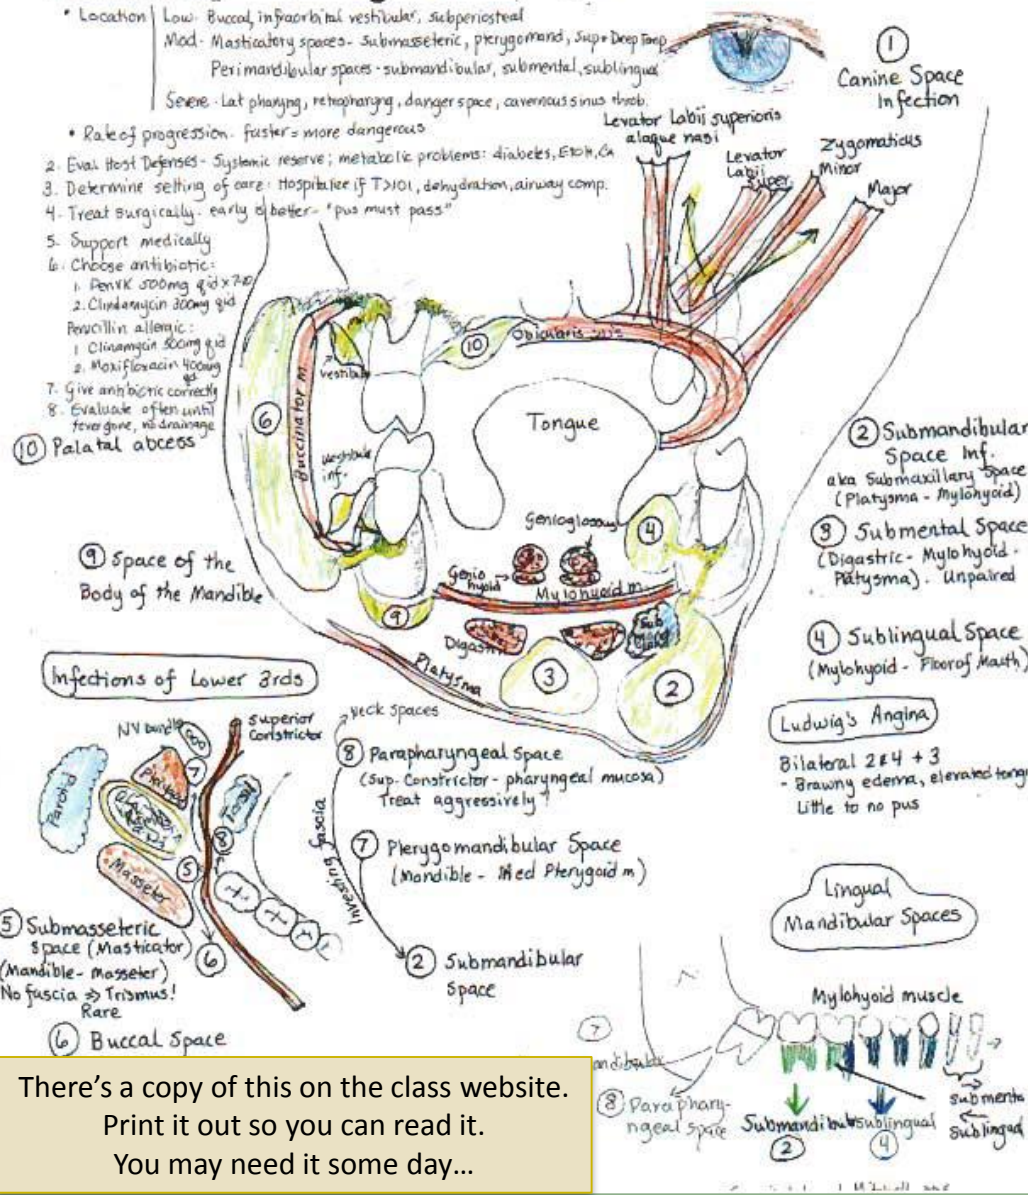 • Location
Low- Buccal, infraorbital vestibular, subperiosteal
Mod- Masticatory spaces- Submasseteric, pterygomand, Sup + Deep Temp
Perimandibular spaces- submandibular, submental, sublingual
Severe- Lat pharyng, retropharyng, danger space, cavernous sinus throb.
• Rate of progression- faster = more dangerous
2. Eval Host Defenses- Systemic reserve; metabolic problems: diabetes, EtoH, CA
3. Determine setting of care: Hospitalize if T>101, dehydration, airway comp.
4. Treat surgically- early is better- "pus must pass"
5. Support medically
6. Choose antibiotic:
1. Pen VK 500mg qid x 7-10
2. Clindamycin 300mg qid
Penicillin allergic:
1 Clinamycin 300mg qid
2. Moxifloxacin 400mg qd
7. Give antibiotic correctly
8. Evaluate often until
fever gone, no drainage
10 Palatal abcess
1
Canine Space
Infection
Levator Labii superioris
alaque nasi
Levator
Labii
Super.
Zygomaticus
Minor
Major
Vestibule
Buccinator m.
6
10
Obicularis oris
Tongue
Vestibule
inf.
Genioglossus
4
Genio
hyoid
Mylohyoid m.
9
Digastric
Sub
Mand
Gland
3
2
Platysma
2 Submandibular
Space Inf.
aka Submaxillary Space
(Platysma - Mylohyoid)
3 Submental Space
(Digastric - Mylohyoid -
Platysma). Unpaired
4 Sublingual Space
(Mylohyoid - Floor of Mouth)
9 Space of the
Body of the Mandible
Infections of Lower 3rds
NV bundle
Superior
Constrictor
Parotid
7
Tonsil
8
Masseter
5
6
5 Submasseteric
Space (Masticator)
(Mandible - masseter)
No fascia ⇒ Trismus!
Rare
6 Buccal Space
Neck spaces
8 Parapharyngeal Space
(Sup. Constrictor - pharyngeal mucosa)
Treat aggressively!
Investing fascia
7 Pterygomandibular Space
(Mandible - Med Pterygoid m)
2 Submandibular
Space
Ludwig's Angina
Bilateral 2&4 + 3
- Brawny edema, elevated tongu
Little to no pus
Lingual
Mandibular Spaces
Mylohyoid muscle
7
andibular
8 Paraphary-
ngeal space
Submandibul
2
sublingual
4
submenta
Sublingual
There's a copy of this on the class website.
Print it out so you can read it.
You may need it some day…